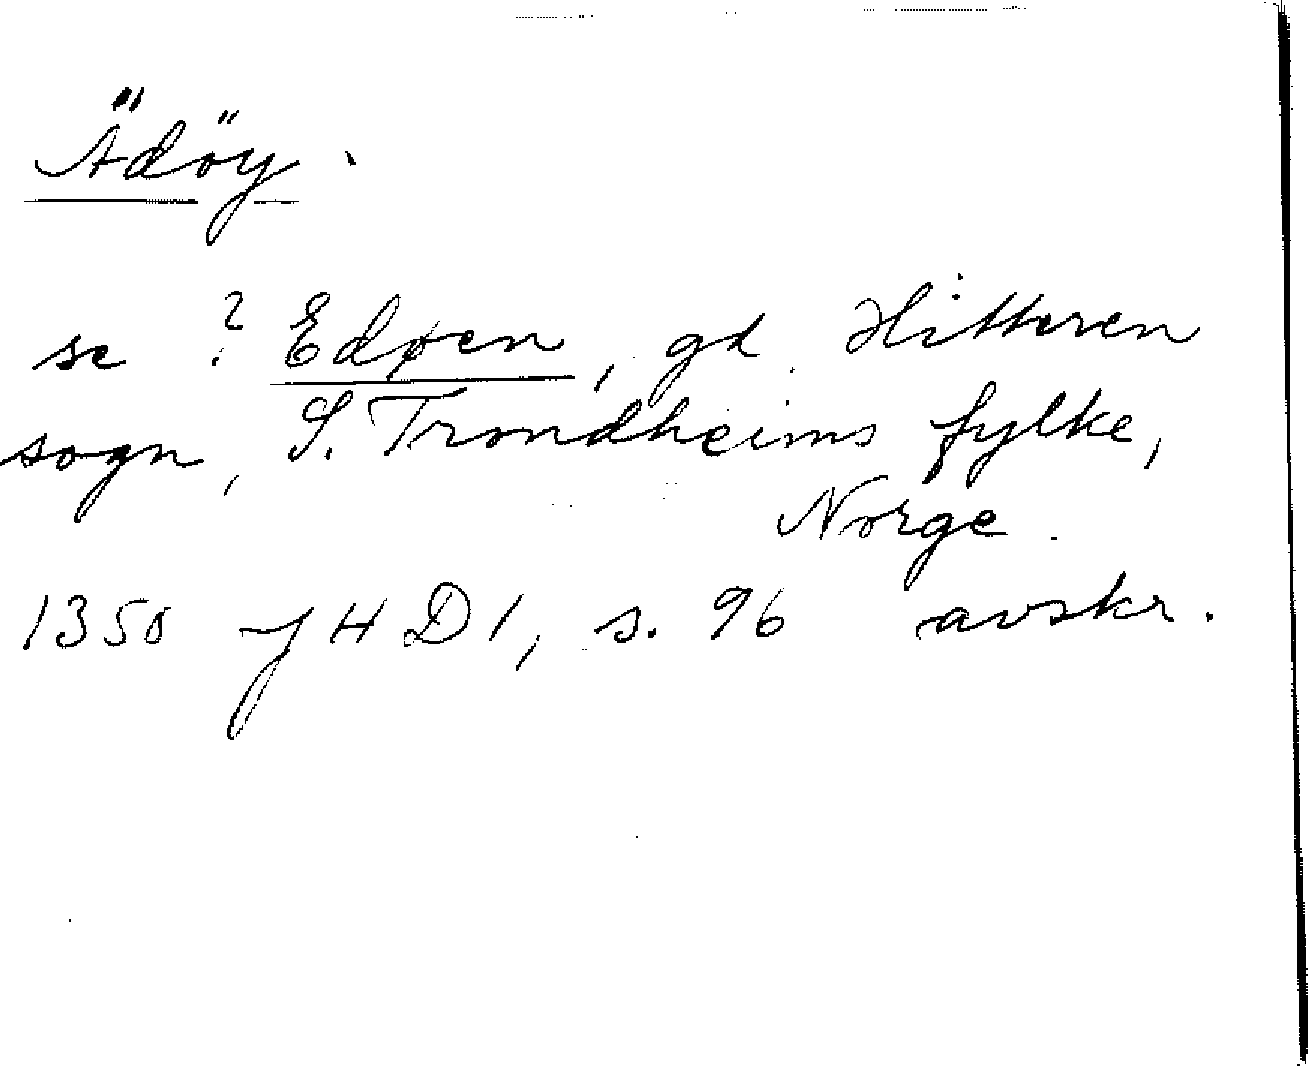 Ädöy.
se ? Edøen, gd Hitteren
sogn, S. Trondheims fylke,
Norge.
1350 JHD 1, s. 96 avskr.